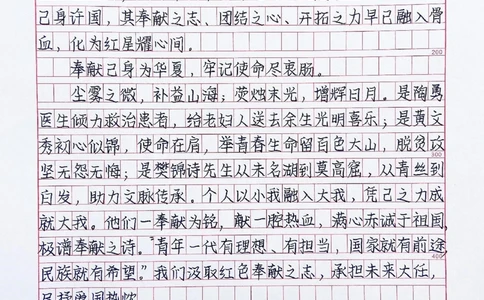 己身许国，其奉献之志、团结之心、开拓之力早已融入骨
血，化为红星耀心间。
200
奉献己身为华夏，牢记使命尽衷肠。
尘雾之微，补益山海；荧烛末光，增辉日月。是陶勇
医生倾力救治患者，给老妇人送去余生光明喜乐；是黄文
秀初心似锦，使命在肩，举青春生命留百色大山，脱贫攻
坚无怨无悔；是樊锦诗先生从未名湖到莫高窟，从青丝到
白发，助力文脉传承。个人以小我融入大我，凭己之力成
就大我。他们一奉献为铭，献一腔热血，满心赤诚于祖国，
极谱奉献之诗。“青年一代有理想、有担当，国家就有前途，
400
民族就有希望。”我们汲取红色奉献之志，承担未来大任，